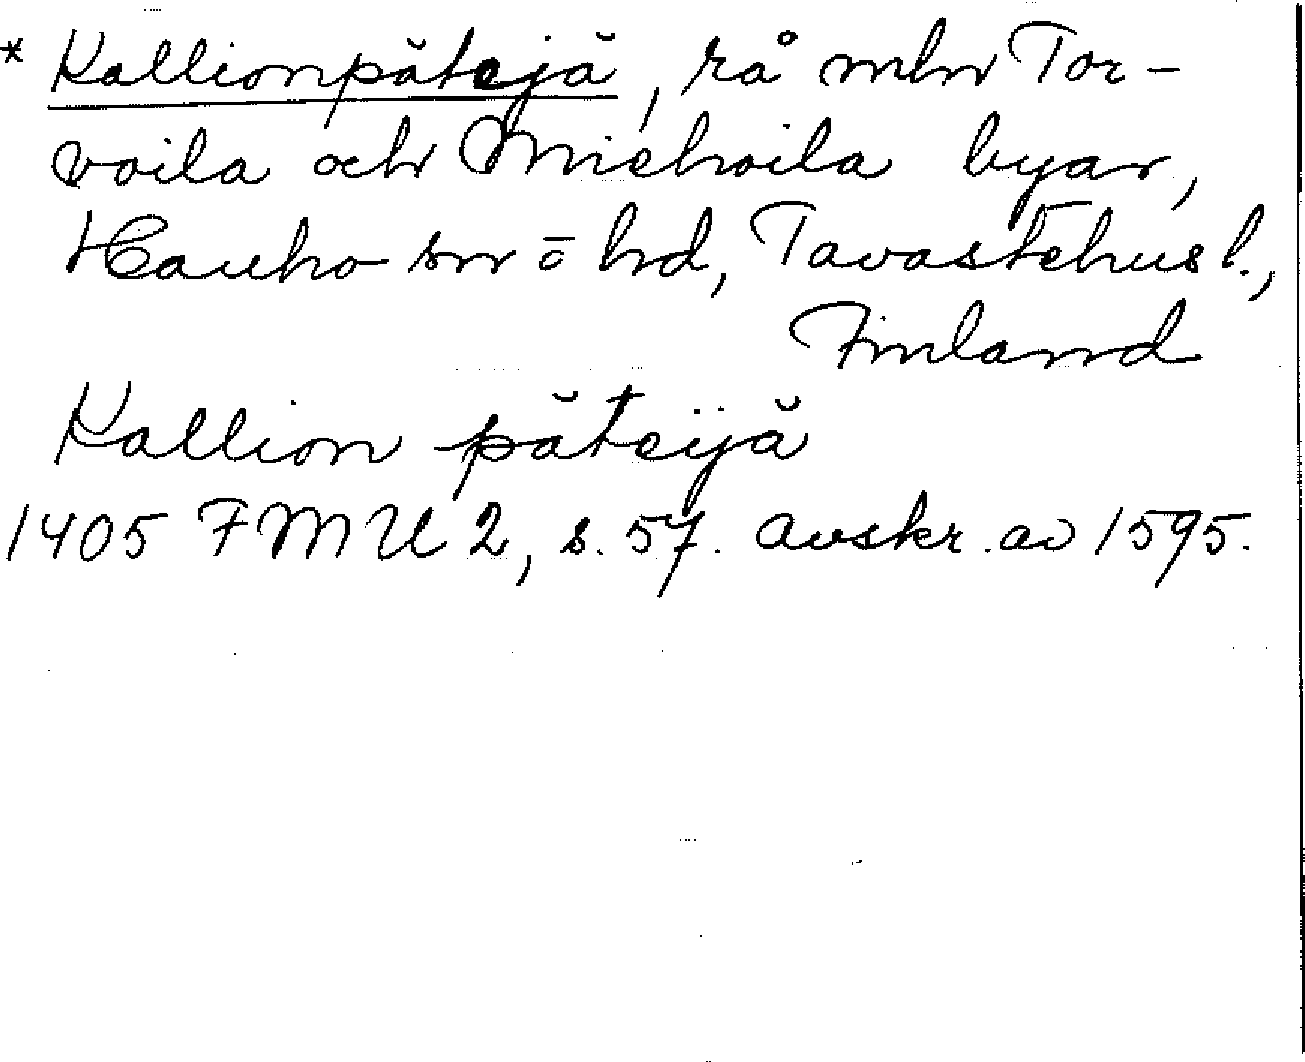 * Kallionpätejä, rå mln Tor-
voila och Miehoila byar,
Hauho sn o hd, Tavastehus l.,
Finland
Kallion päteijä
1405 FMU 2, s. 57. Avskr. av 1595.